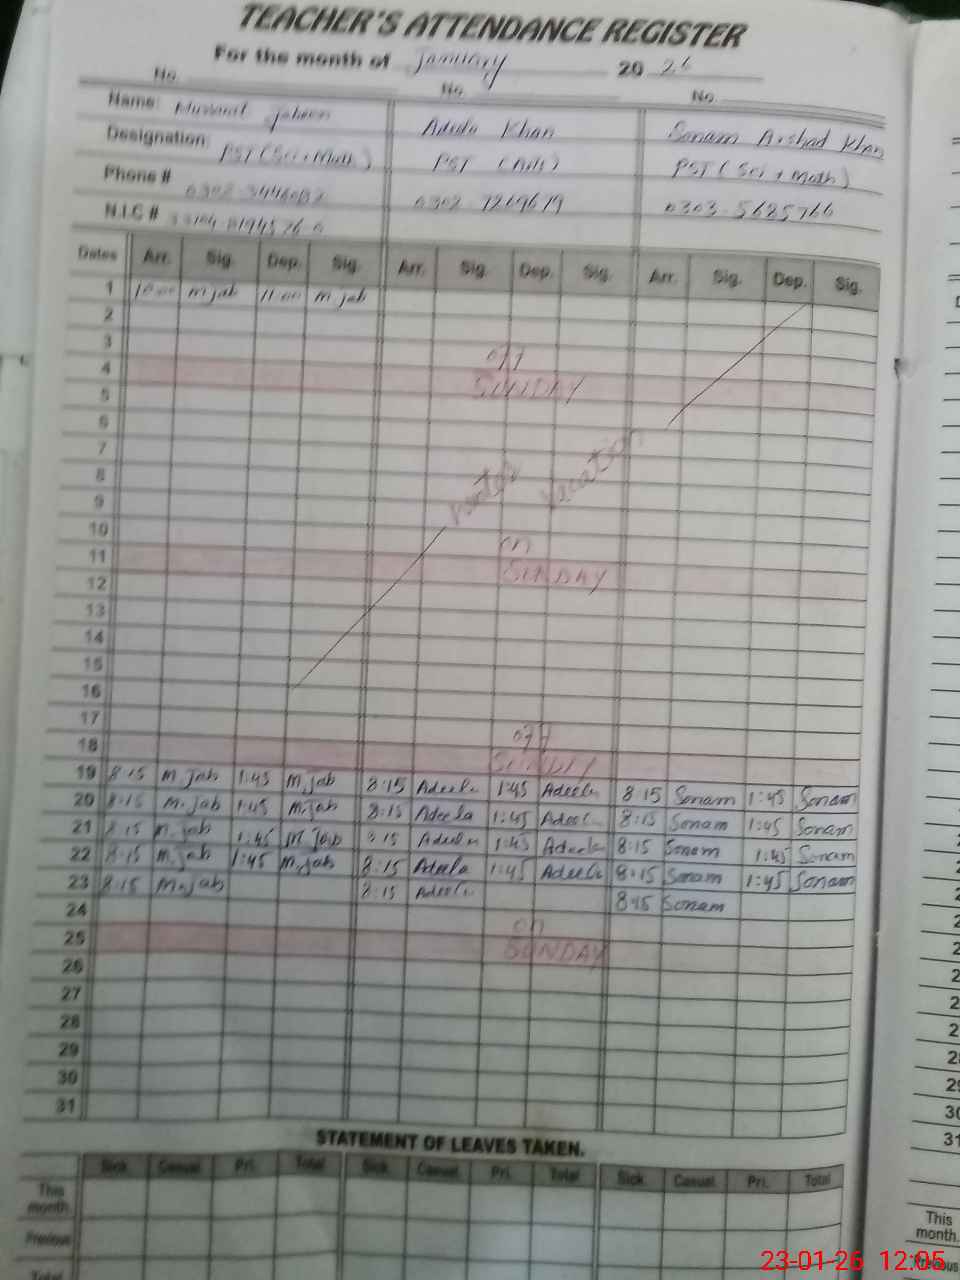 TEACHER'S ATTENDANCE REGISTER
For the month of January 20 26
No. No. No.
Name: Jabeen Adeela Khan Sonam Arshad Khan
Designation: PST (Sci + Math) PST (Arts) PST (Sci + Math)
Phone # 0302 7269679 0303-5685766
N.I.C #
Dates Arr. Sig. Dep. Sig. Arr. Sig. Dep. Sig. Arr. Sig. Dep. Sig.
1 10:00 m jab 11:00 m jab
2
3 off
4 SUNDAY
5
6
7 vacation
8 winter
9
10 on
11 SUNDAY
12
13
14
15
16
17 off
18 SUNDAY
19 8:15 m jab 1:45 m jab 8:15 Adeela 1:45 Adeela 8:15 Sonam 1:45 Sonam
20 8:15 m jab 1:45 m jab 8:15 Adeela 1:45 Adeela 8:15 Sonam 1:45 Sonam
21 8:15 m jab 1:45 m jab 8:15 Adeela 1:45 Adeela 8:15 Sonam 1:45 Sonam
22 8:15 m jab 1:45 m jab 8:15 Adeela 1:45 Adeela 8:15 Sonam 1:45 Sonam
23 8:15 m jab 8:15 Adeela 8:15 Sonam
24 on
25 SUNDAY
26
27
28
29
30
31
STATEMENT OF LEAVES TAKEN.
Sick Casual Pri. Total Sick Casual Pri. Total Sick Casual Pri. Total
This month
Previous
Total
This month.
Previous
23-01-26 12:05